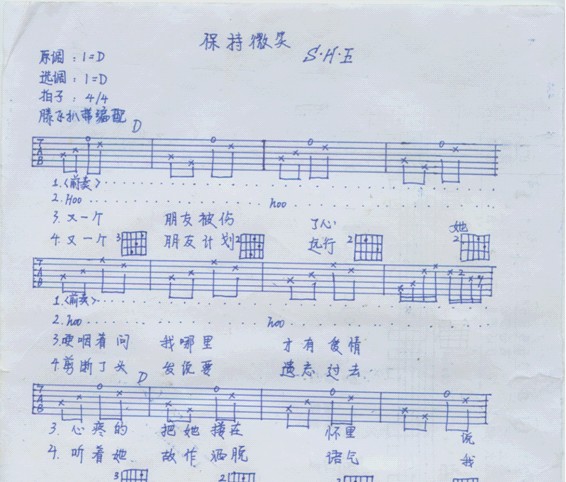 保持微笑
S·H·E
原调：1=D
选调：1=D
拍子：4/4
滕子扒带编配
D
TAB
1.<前奏>
2.Hoo hoo
3.又一个 朋友被伤 了心 她
4.又一个 朋友计划 远行
3 2 2 2
TAB
2
1.<前奏>
2.hoo hoo
3.哽咽着问 我哪里 才有爱情
4.剪断了头 发说要 遗忘过去
D
TAB
3.心疼的 把她搂在 怀里 说
4.听着她 故作洒脱 语气 我
3 2 2